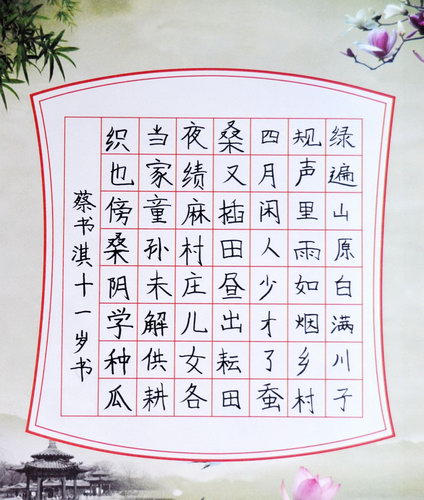 绿遍山原白满川子
规声里雨如烟乡村
四月闲人少才了蚕
桑又插田昼出耘田
夜绩麻村庄儿女各
当家童孙未解供耕
织也傍桑阴学种瓜
蔡书淇十一岁书